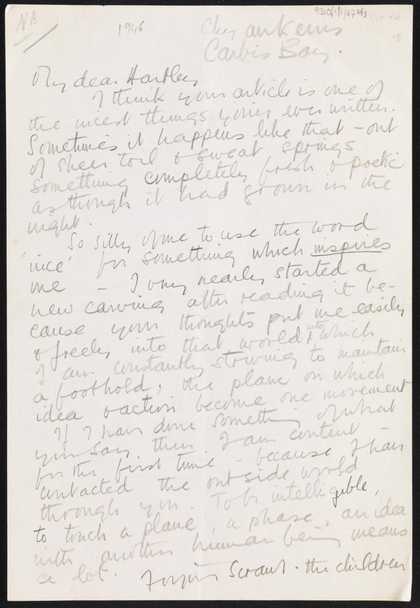 NB
1946
Chy an Kerris
Carbis Bay.
My dear Hartley
I think your article is one of
the nicest things you've ever written.
Sometimes it happens like that – out
of sheer toil & sweat springs
something completely fresh & poetic
as though it had grown in the
night.
So silly of me to use the word
'nice' for something which inspires
me – I very nearly started a
new carving after reading it be-
cause your thoughts put me easily
& freely into that world into which
I am constantly striving to maintain
a foothold, the plane on which
idea & action become one movement
If I have done something of what
you say, then I am content –
for the first time – because I have
contacted the outside world
through you. To be intelligible,
to touch a plane, a phase, an idea
with another human being means
a lot.
Forgive scrawl – the children